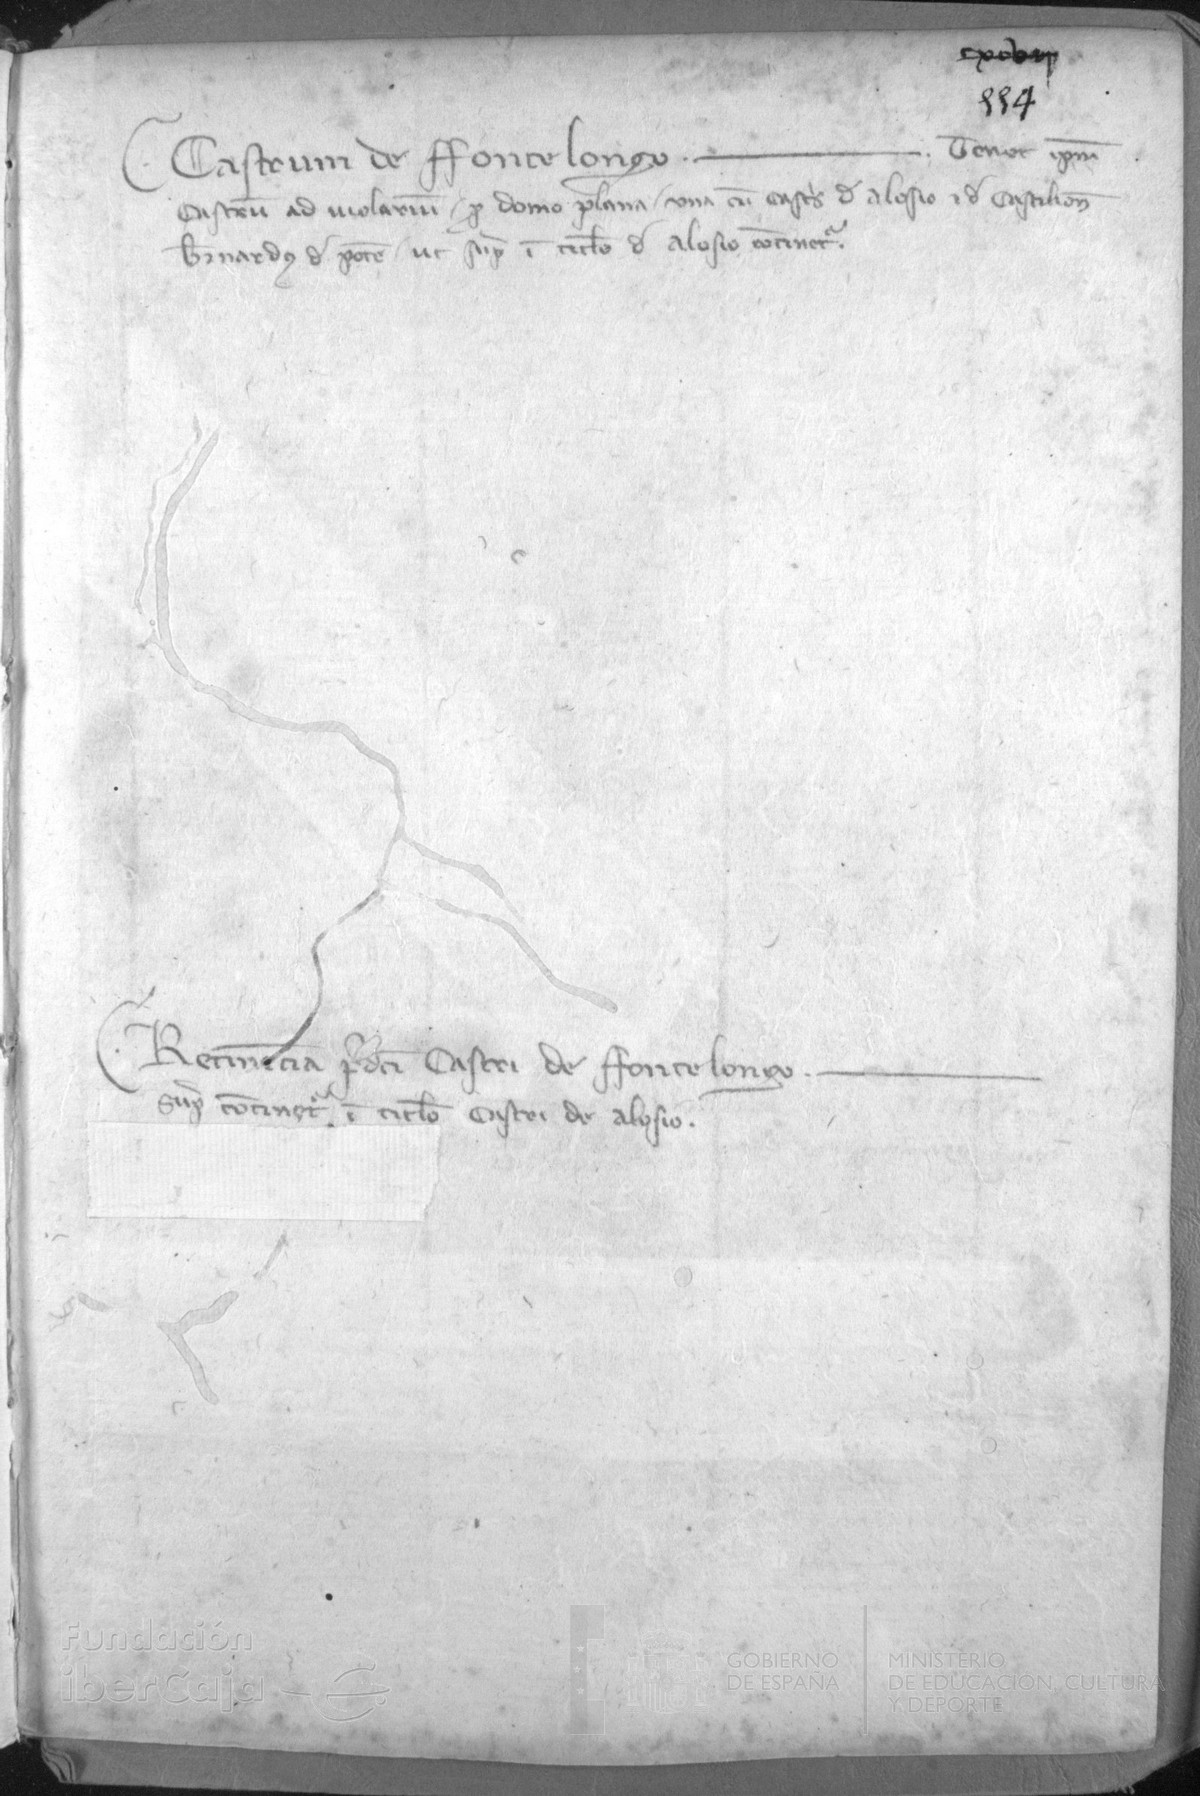 cxxvııı
114
Castrum de ffonte longo . Tenet ipm̄
Castrū ad violariū / p domo plana / vna cū Castis d̄ alosio ⁊ d̄ Castilion̄
b̄nardꝯ d̄ ponte / ut sup̄ ī titl̄o d̄ alosio contineͭ.
Retinētia p̄dc̄i Castri de ffonte longo .
sup̄ contineͭ ī titl̄o Castri de alosio .
Fundación
iberCaja
GOBIERNO
DE ESPAÑA
MINISTERIO
DE EDUCACIÓN, CULTURA
Y DEPORTE